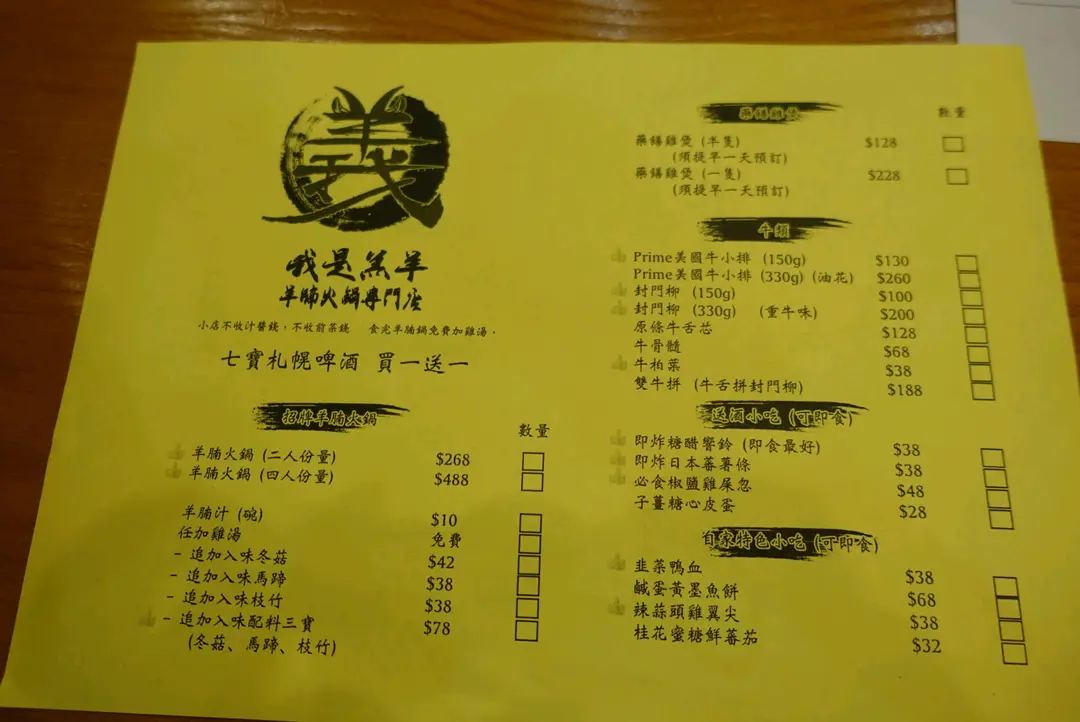 義
我是羔羊
羊腩火鍋專門店
小店不收汁醬錢,不收前茶錢 食完羊腩鍋免費加雞湯。
七寶札幌啤酒 買一送一
招牌羊腩火鍋
數量
羊腩火鍋 (二人份量) $268
羊腩火鍋 (四人份量) $488
羊腩汁 (碗) $10
任加雞湯 免費
- 追加入味冬菇 $42
- 追加入味馬蹄 $38
- 追加入味枝竹 $38
- 追加入味配料三寶 $78
(冬菇、馬蹄、枝竹)
藥膳雞煲
數量
藥膳雞煲 (半隻) $128
(須提早一天預訂)
藥膳雞煲 (一隻) $228
(須提早一天預訂)
牛類
Prime美國牛小排 (150g) $130
Prime美國牛小排 (330g) (油花) $260
封門柳 (150g) $100
封門柳 (330g) (重牛味) $200
原條牛舌芯 $128
牛骨髓 $68
牛柏葉 $38
雙牛拼 (牛舌拼封門柳) $188
送酒小吃 (可即食)
即炸糖醋響鈴 (即食最好) $38
即炸日本蕃薯條 $38
必食椒鹽雞屎忽 $48
子薑糖心皮蛋 $28
自家特色小吃 (可即食)
韭菜鴨血 $38
鹹蛋黃墨魚餅 $68
辣蒜頭雞翼尖 $38
桂花蜜糖鮮蕃茄 $32